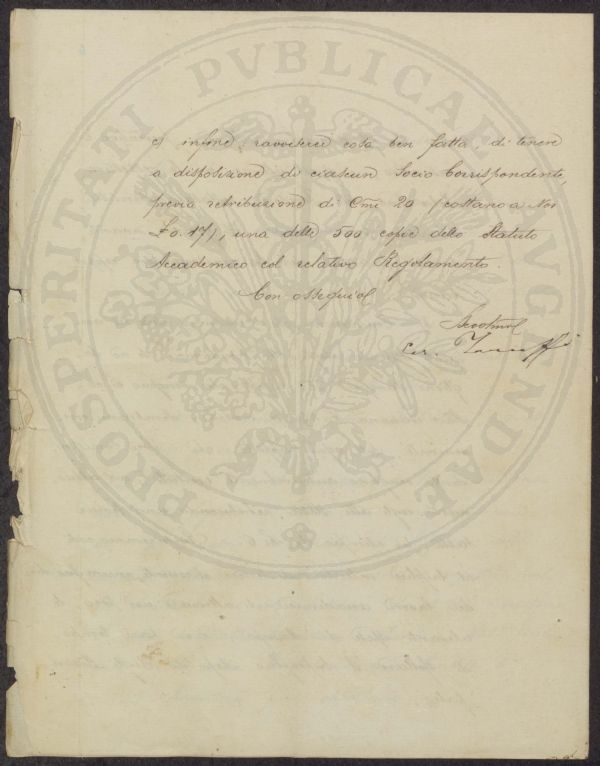 PROSPERITATI PVBLICAE AVGENDAE
c) infine ravviserei cosa ben fatta, di tenere
a disposizione di ciascun Socio Corrispondente,
previa retribuzione di Cmi 20 (costano a Noi
£ 0.17), una delle 500 copie dello Statuto
Accademico col relativo Regolamento.
Con ossequiol
Devotmo